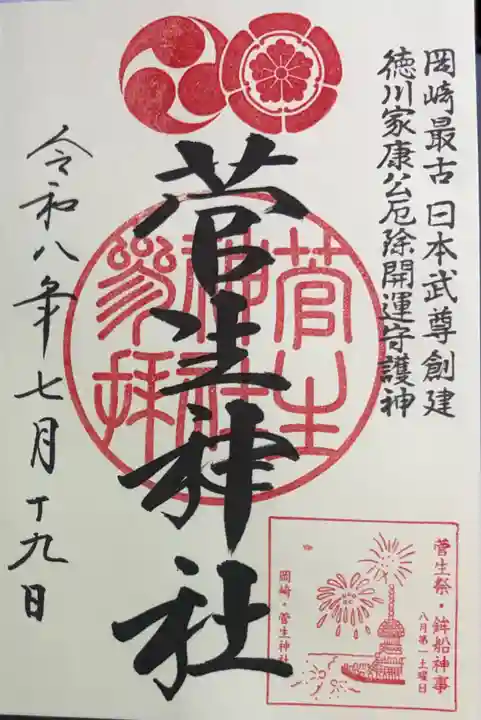 岡崎最古 日本武尊創建
徳川家康公厄除開運守護神
菅生神社
菅生
神社
参拝
令和八年七月十九日
菅生祭・鉾船神事
八月第一土曜日
岡崎・菅生神社